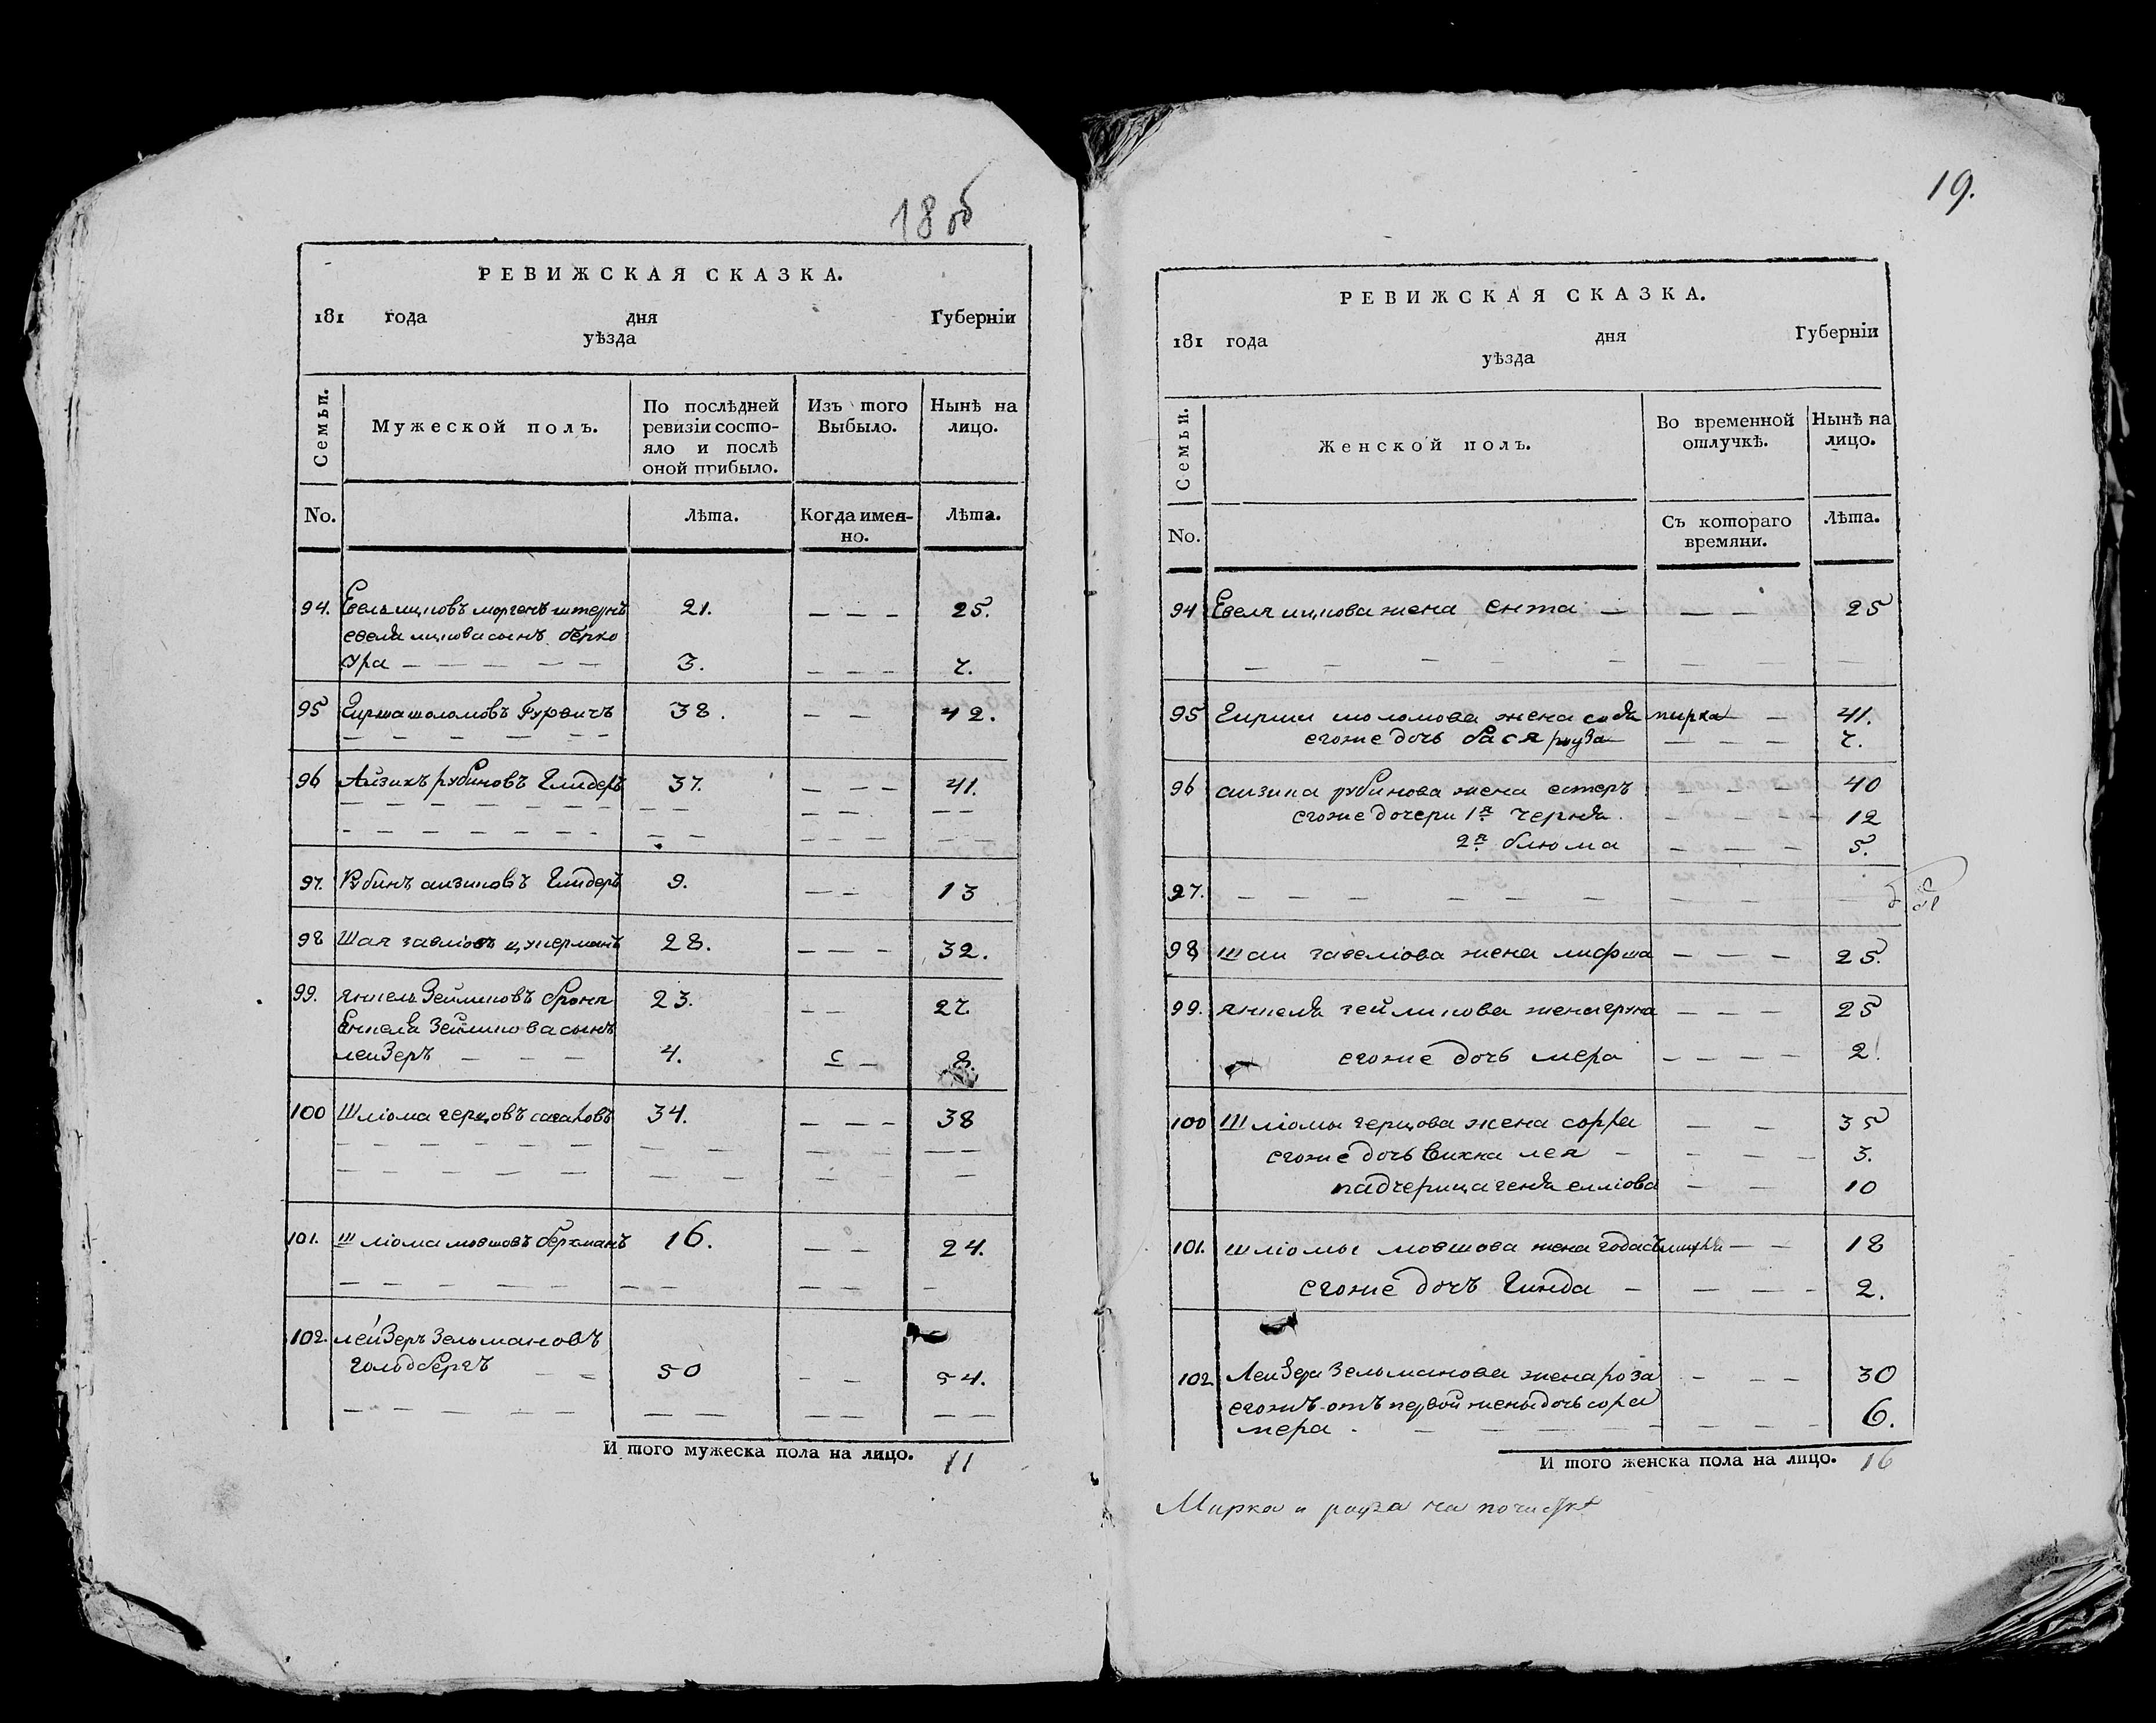 18 об
РЕВИЖСКАЯ СКАЗКА.
181 года дня Губерніи
уѣзда
Семьи.
Мужеской полъ.
По послѣдней ревизіи состо-
яло и послѣ
оной прибыло.
Изъ того
Выбыло.
Нынѣ на
лицо.
No.
Лѣта.
Когда имен-
но.
Лѣта.
94. Евель ицковъ моргенъштернъ 21. — — — 25.
евеля ицкова сынъ берко
сра — — — — — 3. — — — 7.
95 Гирша шоломовъ Гурвичъ 38. — — 42.
96 Айзикъ рубиновъ Глидеръ 37. — — — 41.
97. Рубинъ аизиковъ Глидеръ 9. — — 13
98 Шая гавліовъ цукерманъ 28. — — — 32.
99. янкель Зейликовъ 23. — — 27.
Енкеля Зейликова сынъ
леизеръ — — — 4. — 8.
100 Шліома герцовъ 34. — — — 38
101. Шліома мовшовъ бергманъ 16. — — 24.
102. лейзеръ Зельмановъ
гольдбергъ — — 50 — — 54.
И того мужеска пола на лицо. 11
19.
РЕВИЖСКАЯ СКАЗКА.
181 года дня Губерніи
уѣзда
Семьи.
Женской полъ.
Во временной
отлучкѣ.
Нынѣ на
лицо.
No.
Съ котораго
времяни.
Лѣта.
94 Евеля ицкова жена ента — — — 25
95 Гирши шоломова жена мирка — — 41.
егоже дочь бася рауза — — — 7.
96 аизика рубинова жена естеръ — — — 40
егоже дочери 1я черня — — — 12
2я блюма — — — 5.
97. — — — — — —
98 шаи гавеліова жена лифша — — — 25.
99. янкеля зейликова жена груна — — — 25
егоже дочь мера — — — — 2.
100 Шліомы герцова жена сорра — — 35
егоже дочь вихна лея — — — 3.
падчерица геня елліова — — 10
101. шліомы мовшова жена — — 18
егоже дочъ Гинда — — — — 2.
102 Леизера Зельманова жена роза — — — 30
егожъ отъ первой жены дочь сора
мера. — — — — 6.
И того женска пола на лицо. 16
Мирка и рауза на